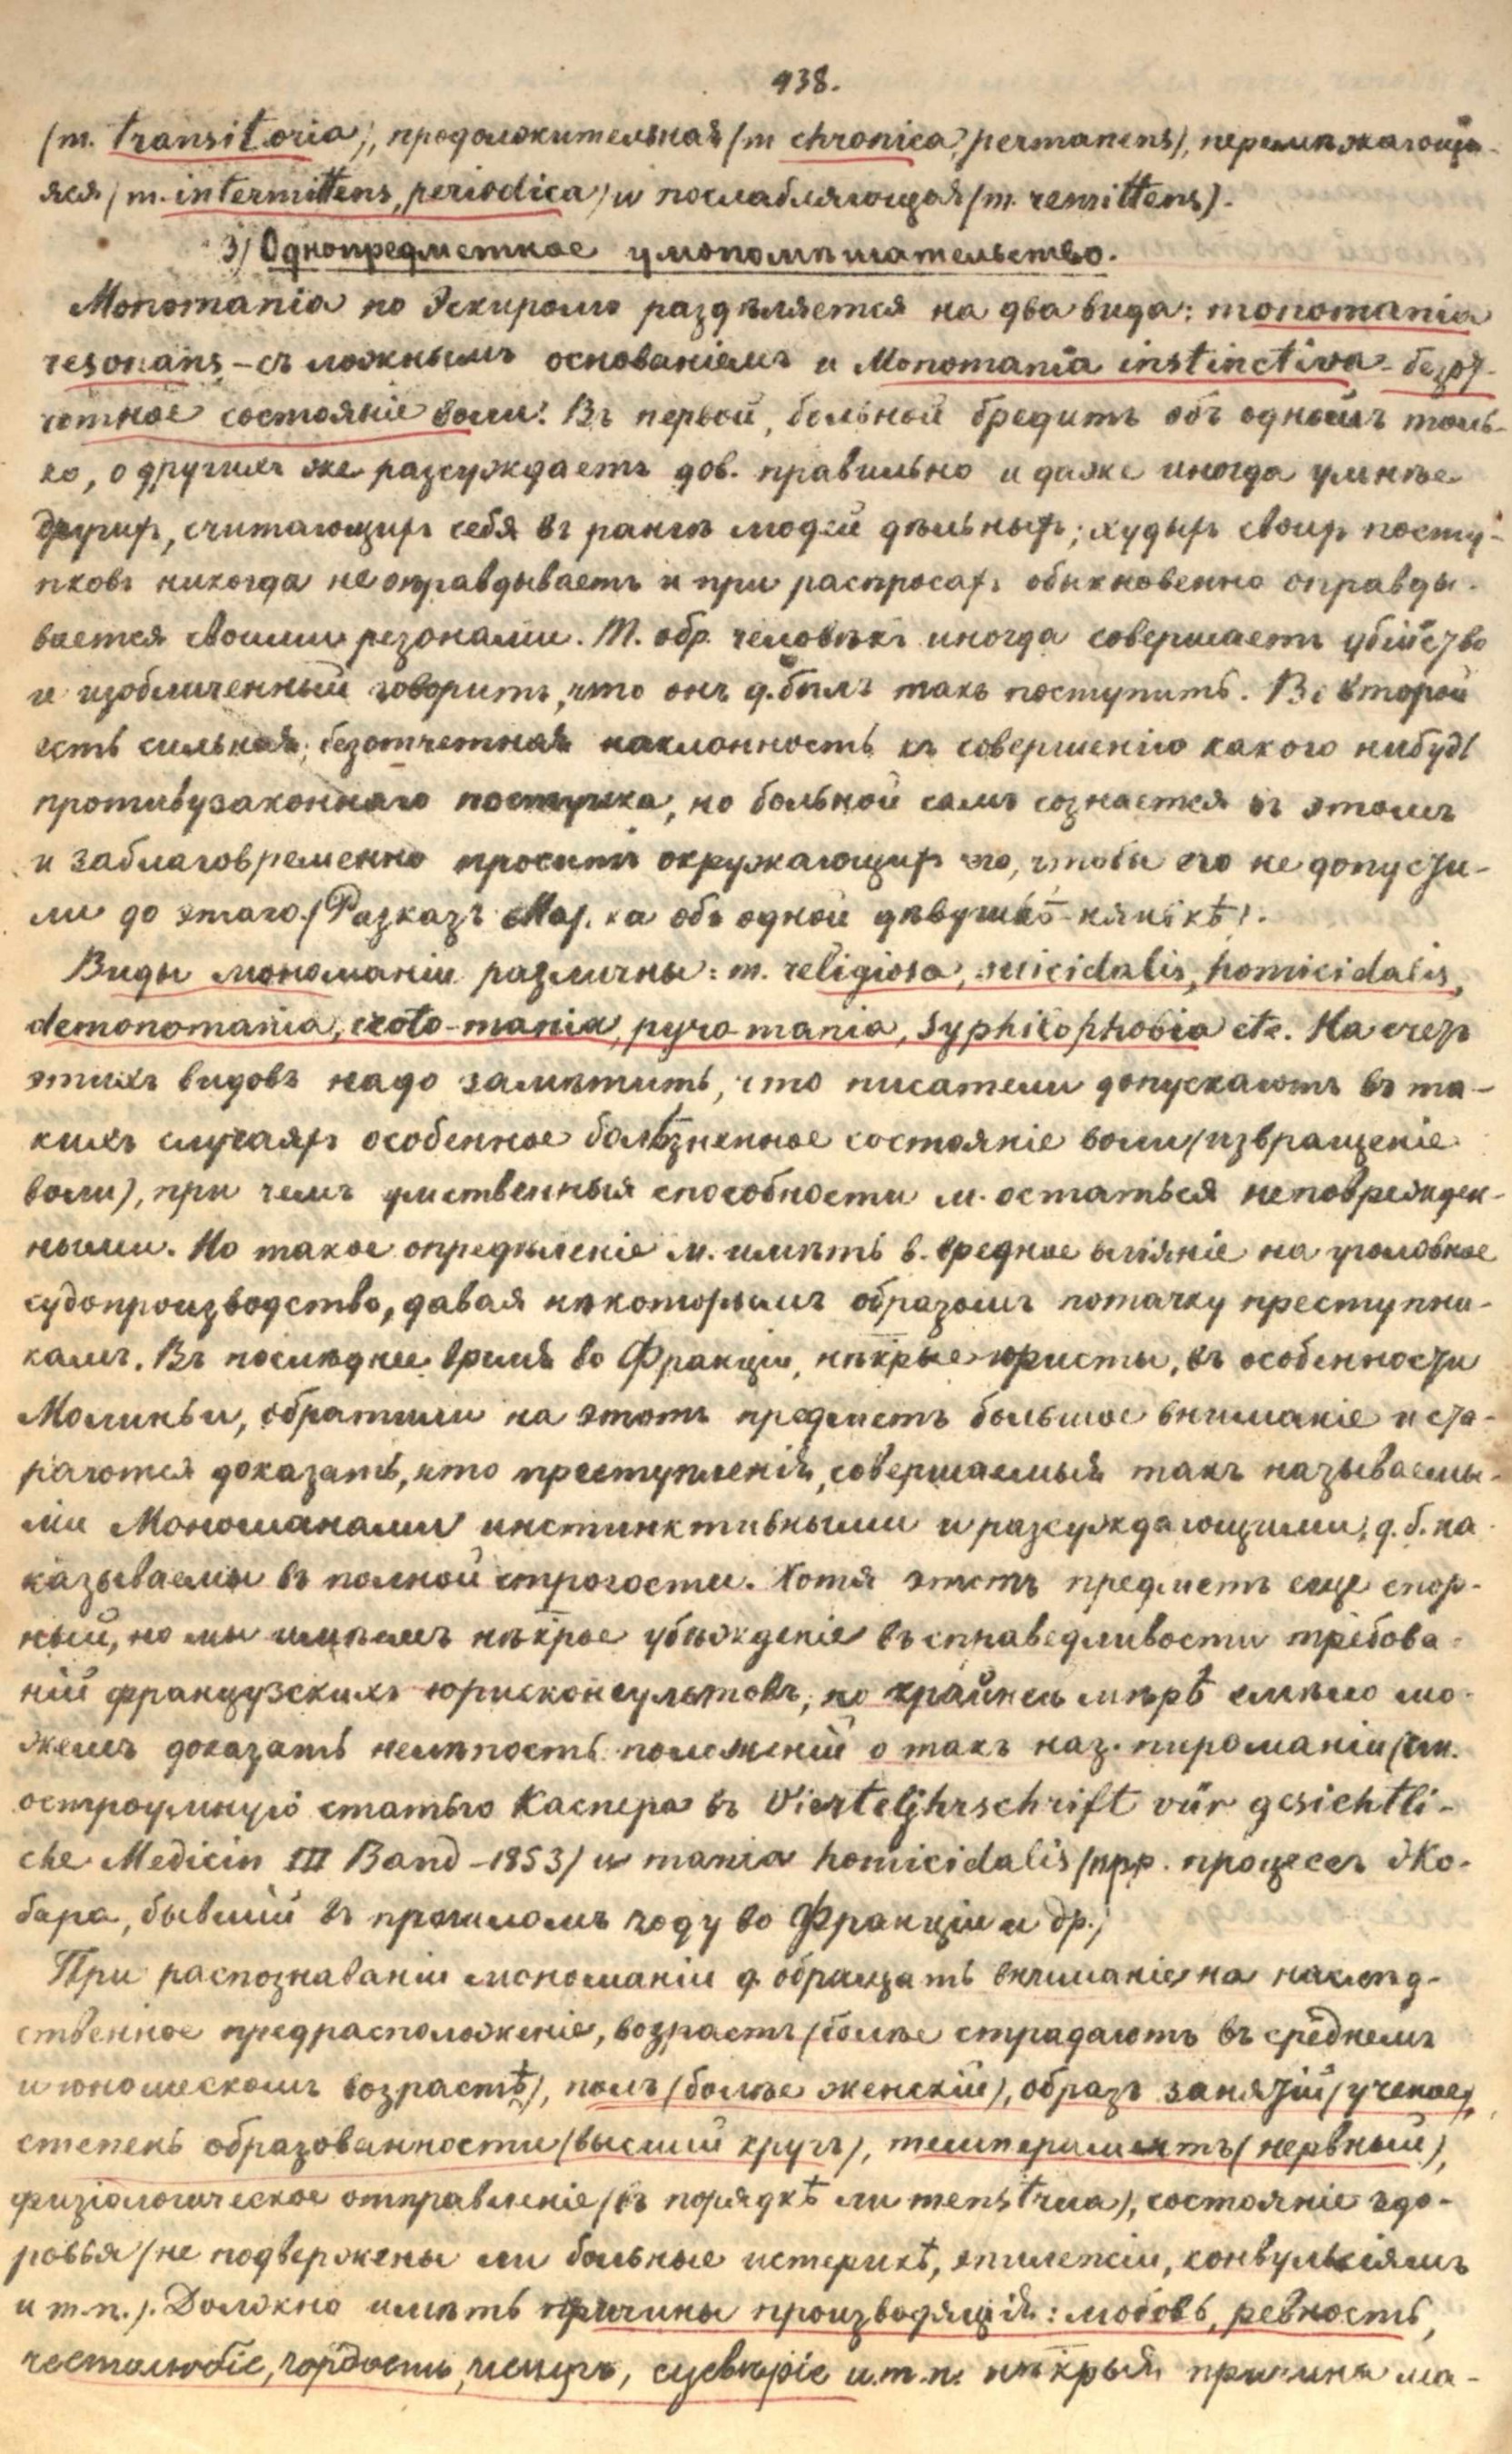 438.
(m. transitoria), продолжительная (m chronica, permanens), перемѣжающа-
яся (m. intermittens, periodica) и послабляющая (m. remittens).
3) Однопредметное умопомѣшательство.
Monomania по Эскиролю раздѣляется на два вида: monomania
resonans – съ ложнымъ основаніемъ и Monomania instinctiva – безот-
четное состояніе воли. Въ первой, больной бредитъ объ одномъ толь-
ко, о другихъ же разсуждаетъ дов. правильно и даже иногда умнѣе
другихъ, считающихъ себя въ рангѣ людей дѣльныхъ; худыхъ своихъ посту-
пковъ никогда не оправдываетъ и при распросахъ обыкновенно оправды-
вается своими резонами. Т. обр. человѣкъ иногда совершаетъ убійство
и изобличенный говоритъ, что онъ д. былъ такъ поступить. Во второй
есть сильная, безотчетная наклонность къ совершенію какого нибудь
противузаконнаго поступка, но больной самъ сознается въ этомъ
и заблаговременно проситъ окружающихъ его, чтобы его не допусти-
ли до этаго. (Разказъ ка объ одной дѣвушкѣ-нянькѣ).
Виды мономаніи различны: m. religiosa, suicidalis, homicidalis,
demonomania, eroto-mania, pyro mania, syphilophobia etc. На счетъ
этихъ видовъ надо замѣтить, что писатели допускаютъ въ та-
кихъ случаяхъ особенное болѣзненное состояніе воли (извращеніе
воли), при чемъ умственныя способности м. остаться неповрежден-
ными. Но такое опредѣленіе м. имѣть в. вредное вліяніе на уголовное
судопроизводство, давая нѣкоторымъ образомъ потачку преступни-
камъ. Въ послѣднее время во Франціи, нѣкрые юристы, въ особенности
Молиньи, обратили на этотъ предметъ большое вниманіе и ста-
раются доказать, что преступленія, совершаемыя такъ называемы-
ми Мономанами инстинктивными и разсуждающими, д. б. на-
казываемы въ полной строгости. Хотя этотъ предметъ еще спор-
ный, но мы имѣемъ нѣкрое убѣжденіе въ справедливости требова-
ній французскихъ юрисконсультовъ, по крайней мѣрѣ смѣло мо-
жемъ доказать нелѣпость положеній о такъ наз. пироманіи (см.
остроумную статью Каспера въ Vierteljhrschrift vür gesichtli-
che Medicin III Band – 1853) и mania homicidalis (прр. процессъ Жо-
бара, бывшій въ прошломъ году во Франціи и др.)
При распознаваніи мономаніи д. обращать вниманіе на наслѣд-
ственное предрасположеніе, возрастъ (болѣе страдаютъ въ среднемъ
и юношескомъ возрастѣ), полъ (болѣе женскій), образъ занятій (ученое),
степень образованности (высшій кругъ), темпераментъ (нервный),
физіологическое отправленіе (въ порядкѣ ли menstrua), состояніе здо-
ровья (не подвержены ли больные истерикѣ, эпилепсіи, конвульсіямъ
и т. п.). Должно имѣть причины производящія: любовь, ревность,
честолюбіе, гордость, испугъ, суевѣріе и. т. п. нѣкрыя причины ма-